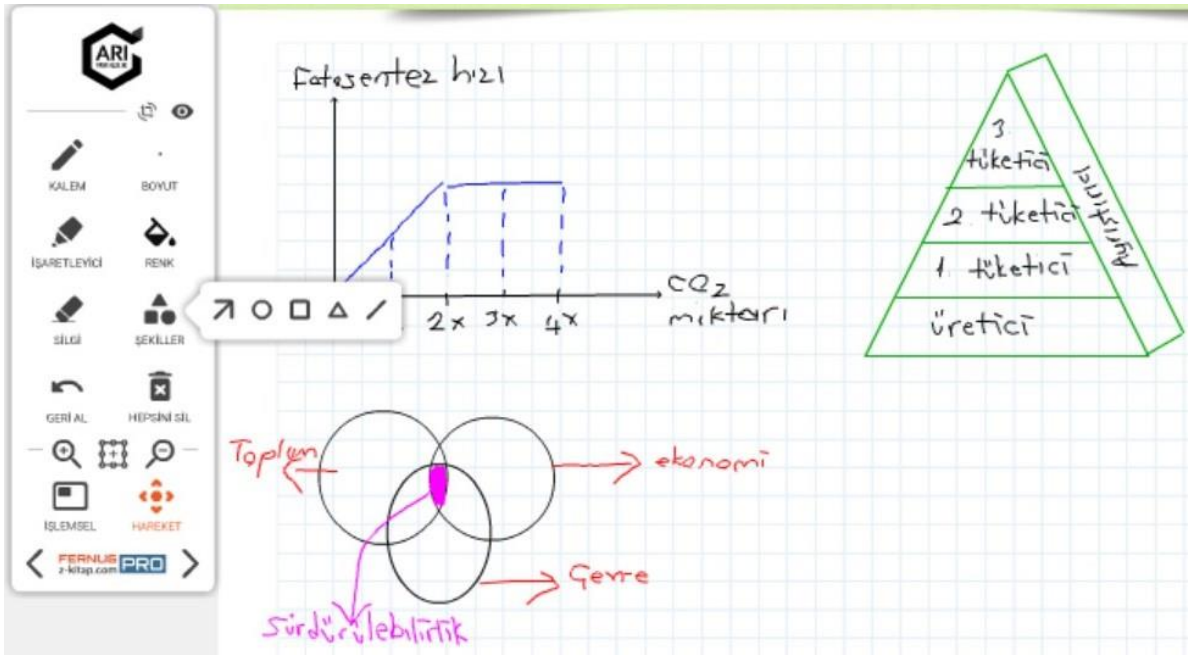 ARI
KALEM
BOYUT
İŞARETLEYİCİ
RENK
SİLGİ
ŞEKİLLER
GERİ AL
HEPSİNİ SİL
İŞLEMSEL
HAREKET
FERNUS PRO
z-kitap.com
Fotosentez hızı
2x 3x 4x
CO2
miktarı
3.
tüketici
2. tüketici
1. tüketici
üretici
Ayrıştırıcı
Toplum
ekonomi
Çevre
Sürdürülebilirlik